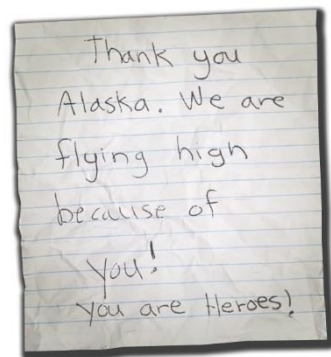 Thank you
Alaska. We are
flying high
because of
you!
You are Heroes!